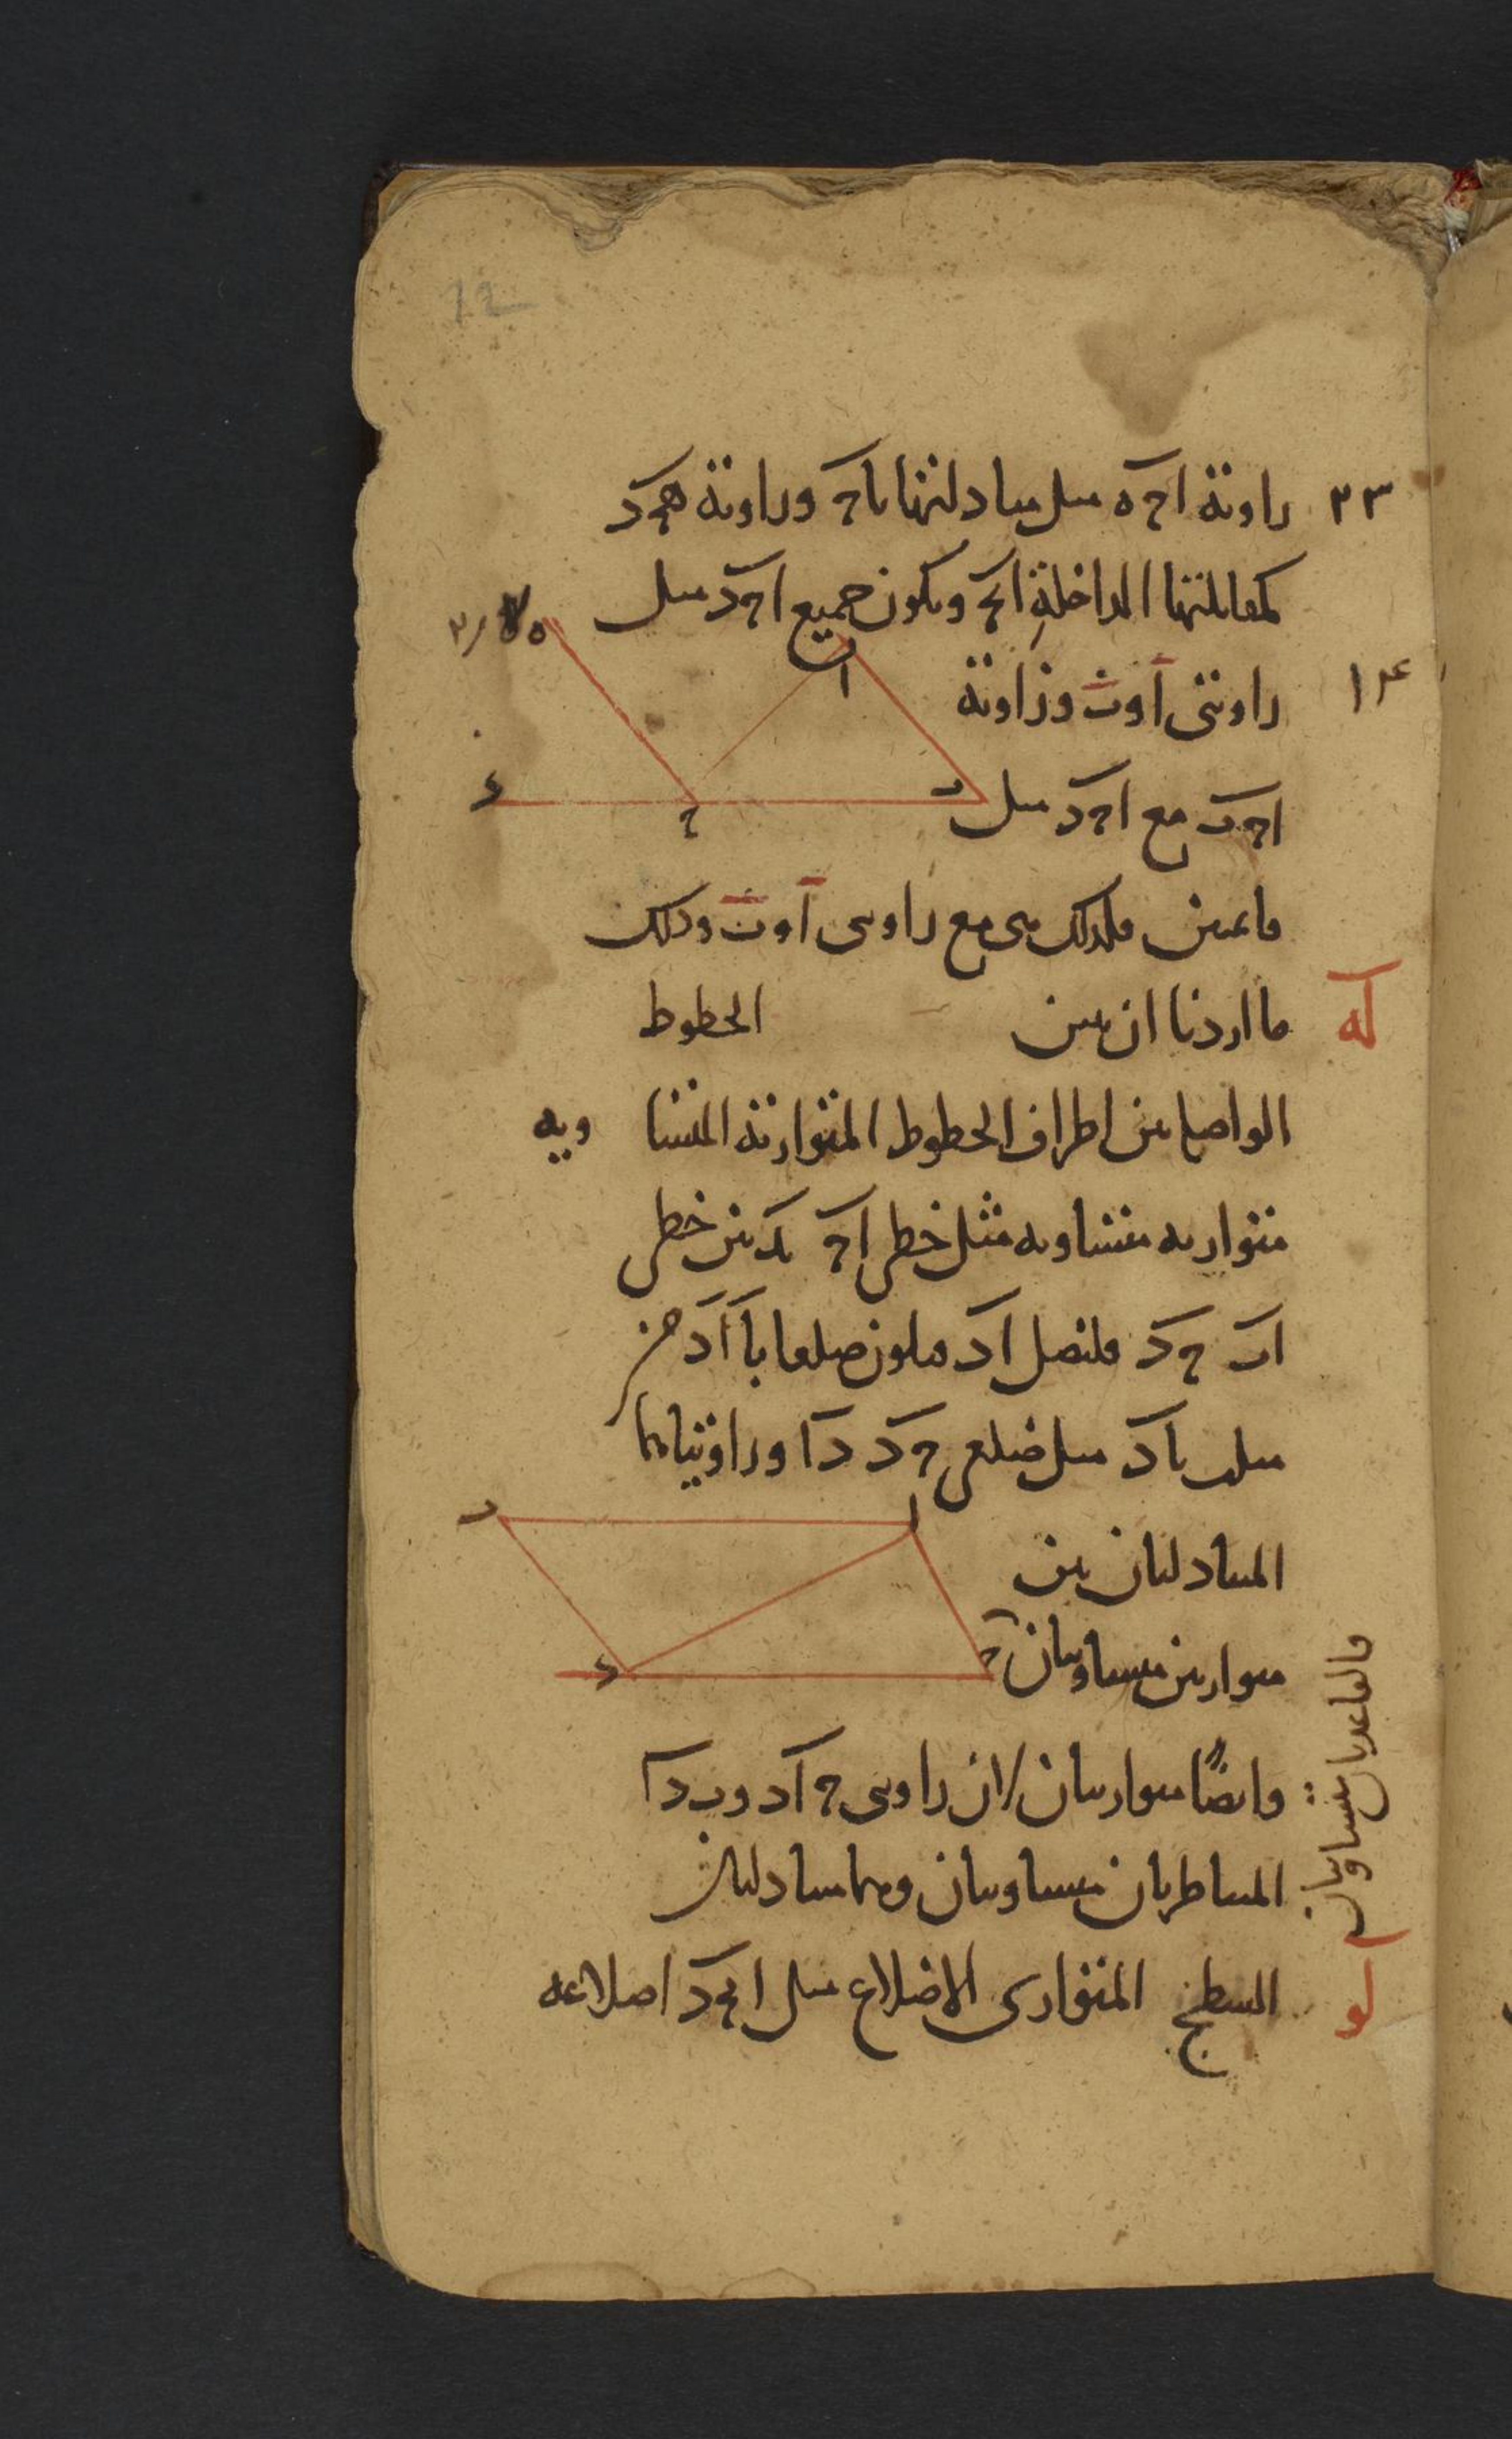 12
٢٣ زاوية اجه مثل مبادلتها باج وزاوية هجد
كمقابلتها الداخلة ابج ويكون جميع اجد مثل
زاويتى ا وب وزاوية
اجب مع اجد مثل
قايمتين فلذلك هى مع زاويتى ا وب وذلك
ما اردنا ان نبين الخطوط
الواصلة بين اطراف الخطوط المتوازية المتسا ويه
متوازيه متساويه مثل خطى اج بد بين خطى
اب جد فلنصل اد فيكون ضلعا با اد من
مثلث باد مثل ضلعى جد دا وزاويتاهما
المتبادلتان بين
متوازيين متساويتان
وايضًا متوازيتان لان زاويتى جاد وبدا
المتناظرتان متساويتان وهما متبادلتان
السطح المتوازى الاضلاع مثل ابجد اضلاعه
فالقاعدتان متساويتان
له
لو
ا
ب
ج
د
ه
ا
ب
ج
د